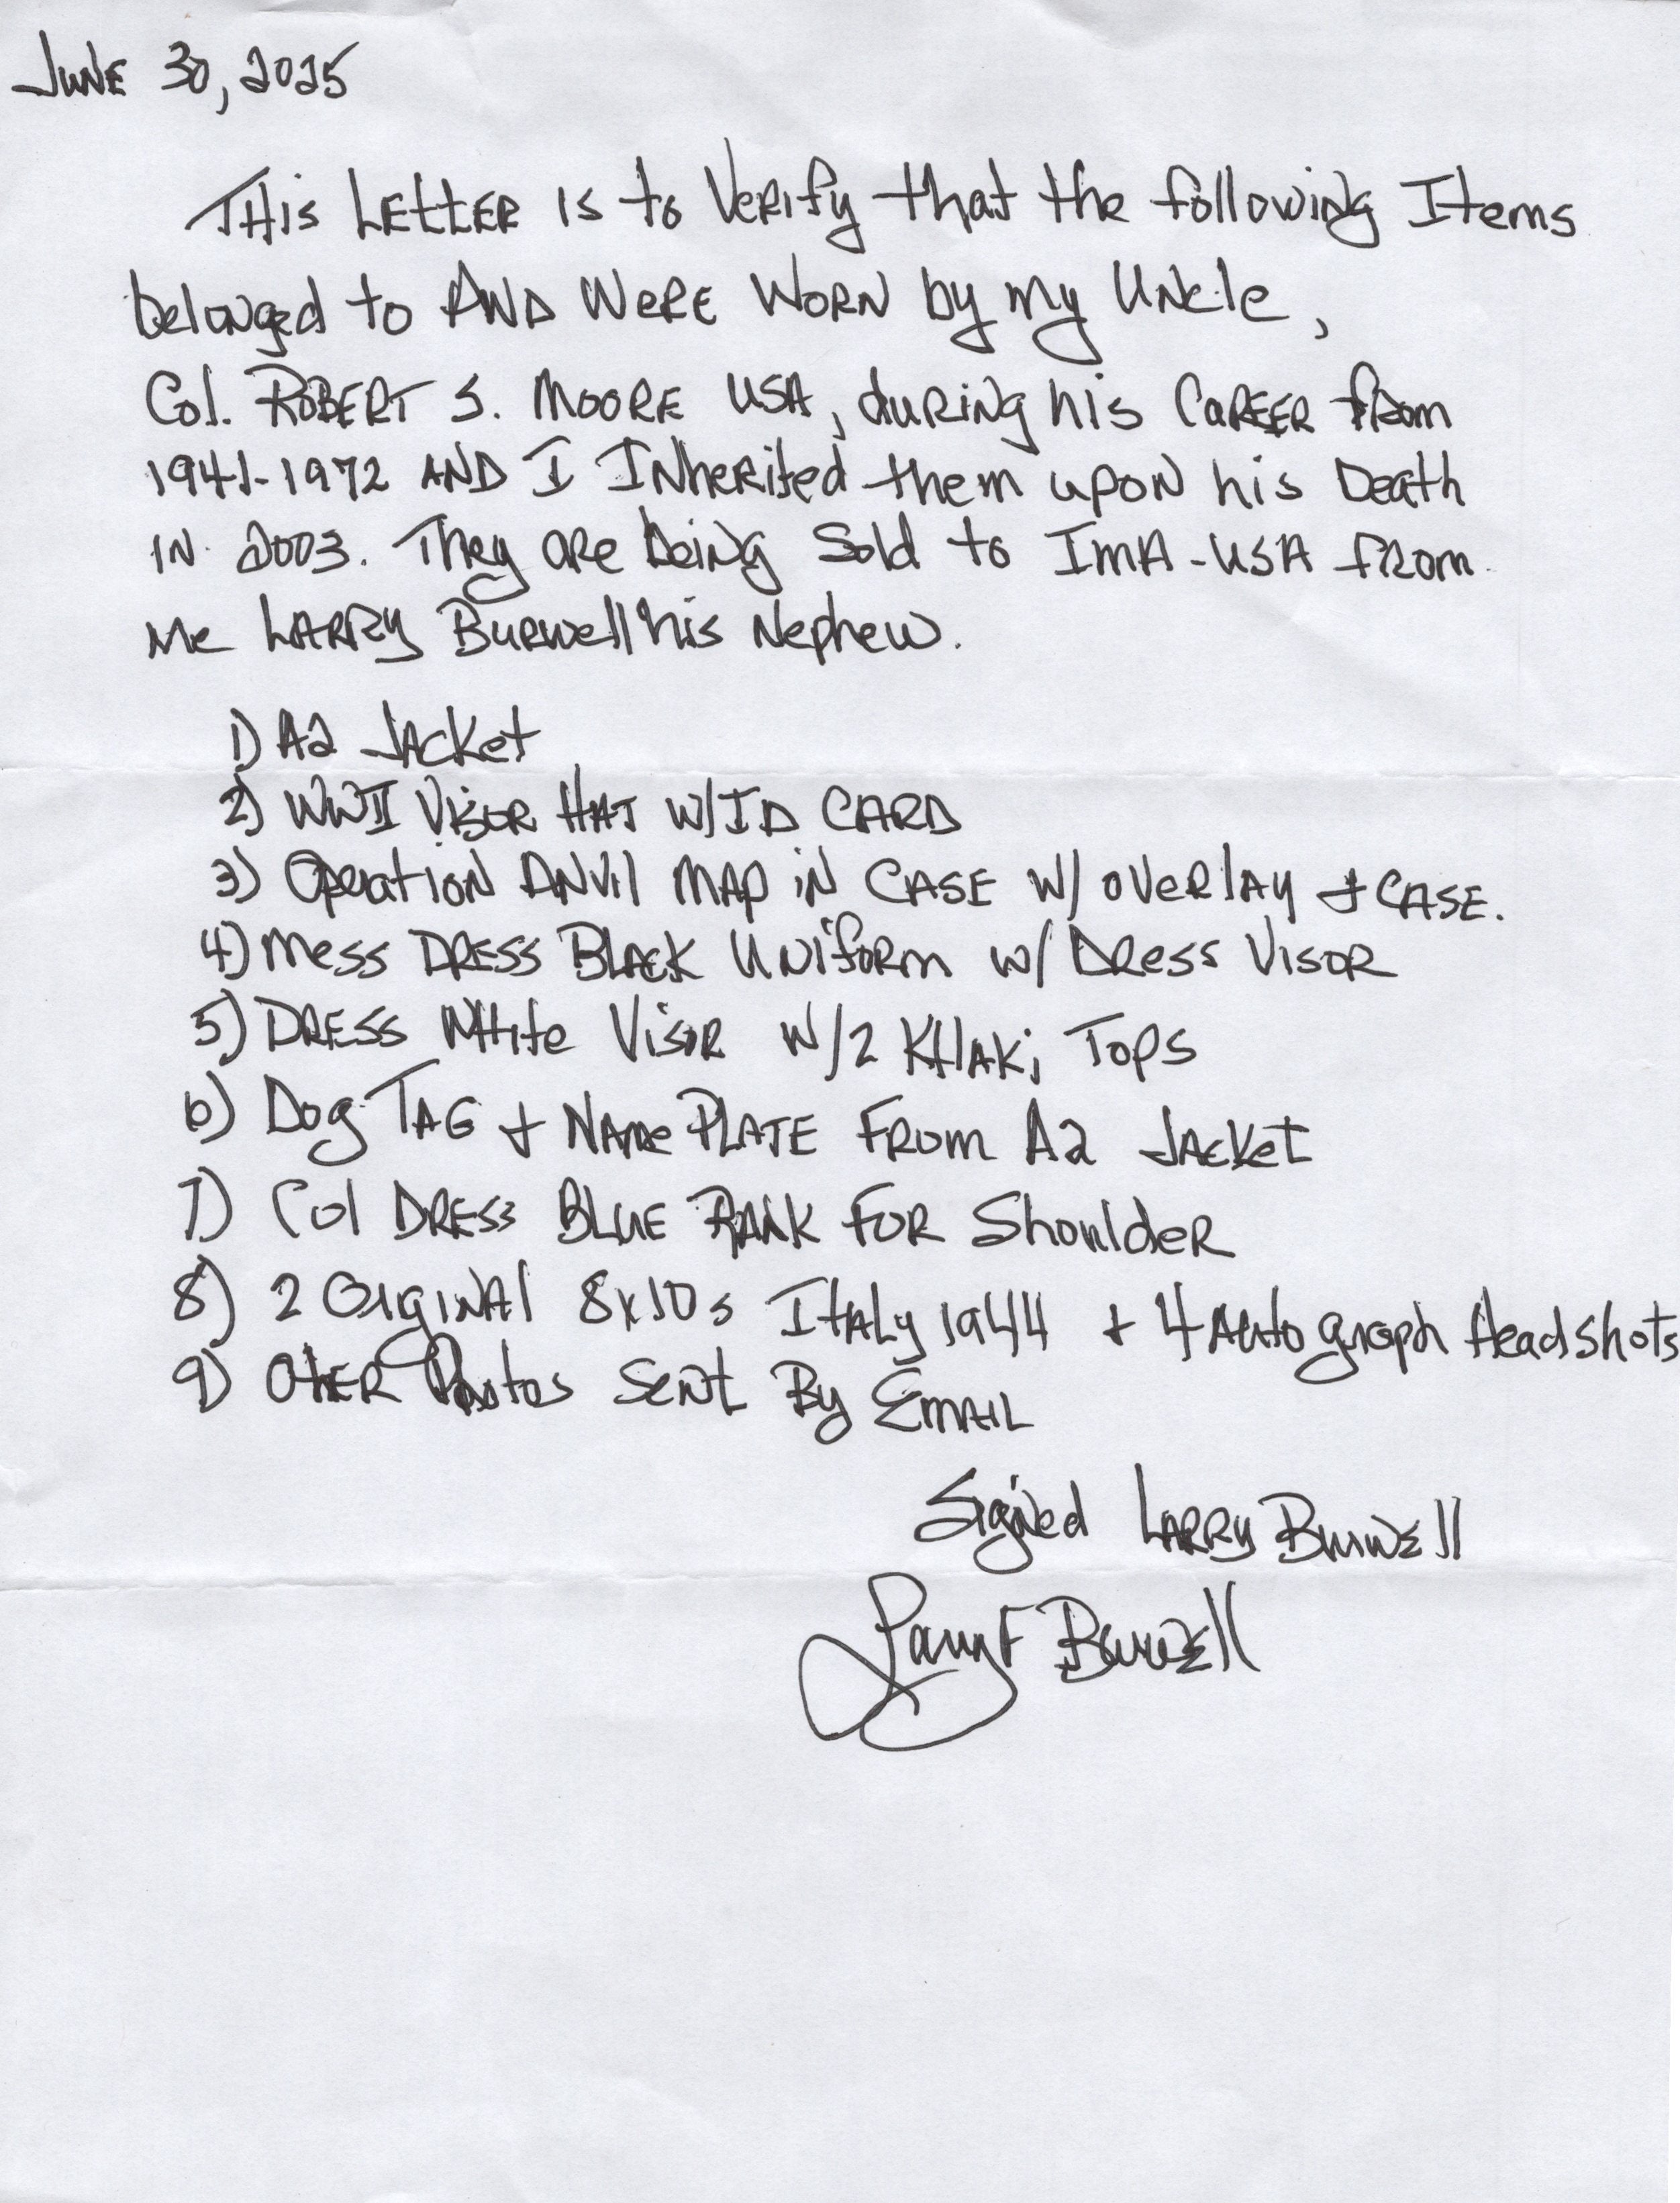 JUNE 30, 2025
THis LEttER is to VERify that the following Items
belonged to AND WERE WORN by my UNcle,
Col. ROBERT S. MOORE USA, duRiNg his CaREER fRom
1941-1972 AND I INheRited them upoN his Death
IN 2003. They aRe being Sold to ImA-USA fRom
Me LARRy BuRwell his Nephew.
1) A2 JAcKet
2) WWII VisoR HAT W/ID CARD
3) OpeRatioN ANVil MAp iN CASE W/ oVeRlAy + CASE.
4) Mess DRESS BLAcK UNifoRm w/ DRess VisoR
5) DRESS WHite VisiR W/2 KHAKi TopS
6) Dog TAG + NAme PLATE FRom A2 JAcKet
7) Col DRESS BLUE RANK FOR ShoulDeR
8) 2 OrigiNAl 8x10s ItALy 1944 + 4 AutogRaph HeadShots
9) OtHER Photos SeNt By EmAIL
SigNed LARRy BuRwell
Larry F Burwell